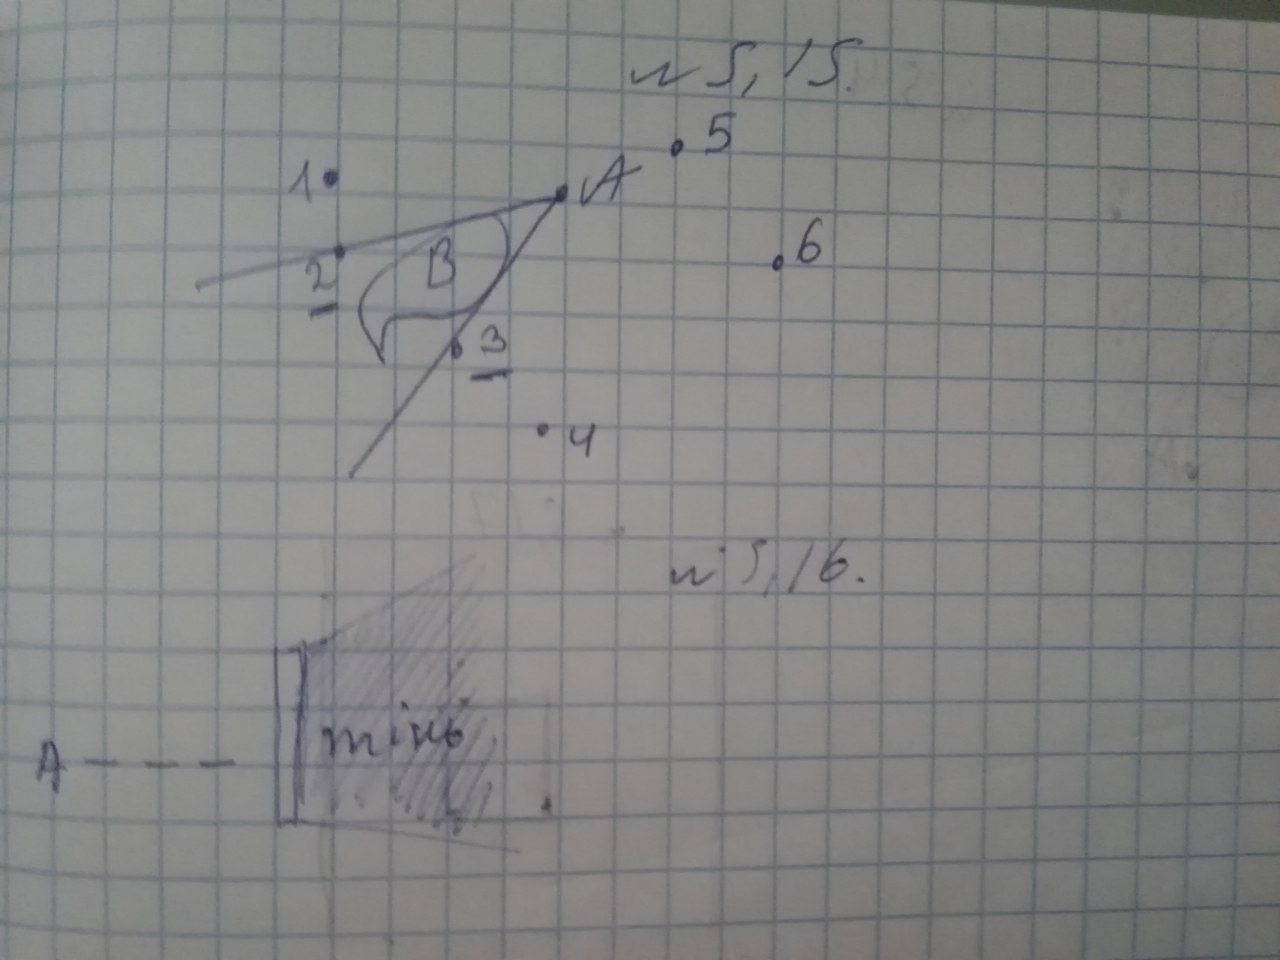 № 5, 15.
5
1
A
6
B
2
3
4
№ 5, 16.
A
тінь